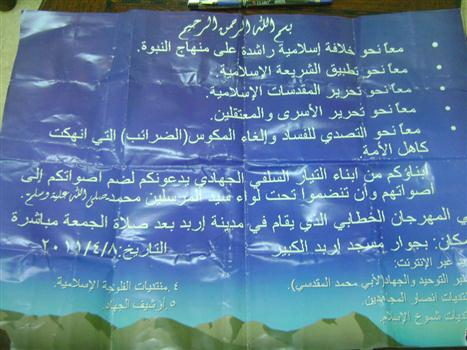 بسم الله الرحمن الرحيم
• معاً نحو خلافة إسلامية راشدة على منهاج النبوة.
• معاً نحو تطبيق الشريعة الإسلامية.
• معاً نحو تحرير المقدسات الإسلامية.
• معاً نحو تحرير الأسرى والمعتقلين.
• معاً نحو التصدي للفساد وإلغاء المكوس(الضرائب) التي انهكت
كاهل الأمة.
أبناؤكم من ابناء التيار السلفي الجهادي يدعونكم لضم أصواتكم إلى
أصواتهم وأن تنضموا تحت لواء سيد المرسلين محمد صلى الله عليه وسلم-
في المهرجان الخطابي الذي يقام في مدينة إربد بعد صلاة الجمعة مباشرة
المكان: بجوار مسجد إربد الكبير التاريخ: ٢٠١١/٤/٨
عبر الإنترنت:
التوحيد والجهاد(لأبي محمد المقدسي). ٤. منتديات الفلوجة الإسلامية.
منتديات انصار المجاهدين. ٥. أرشيف الجهاد.
منتديات شموخ الإسلام.